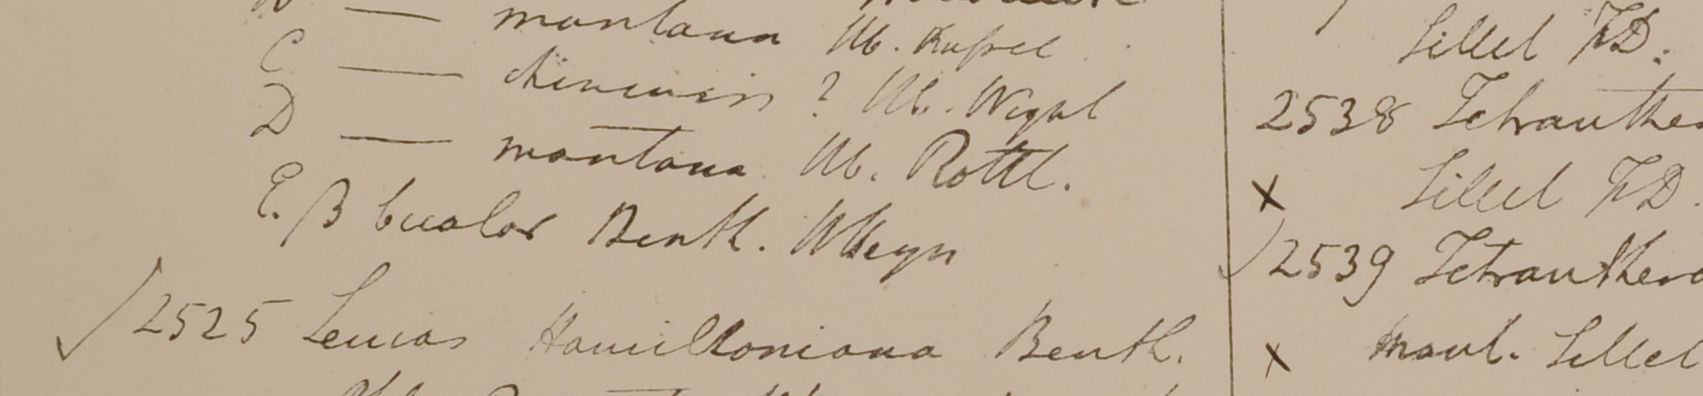 B — montana Hb. Russel
C — chinensis ? Hb. Wight
D — montana Hb. Rottl.
E. β bicolor Benth. Hb Heyn
2525 Leucas Hamiltoniana Benth.
Sillet FD.
2538 Tetranthe
x Sillet FD.
2539 Tetranthera
x Mont. Sillet